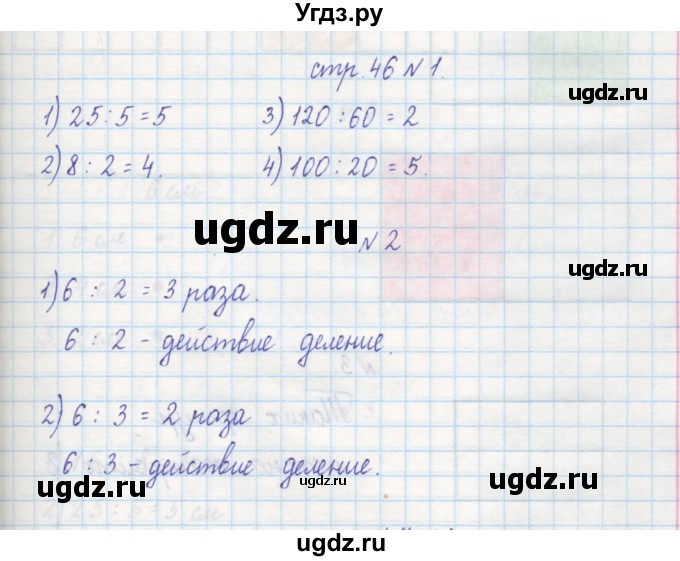 Угдз.ру
стр. 46 N 1.
ugdz.ru
1) 25 : 5 = 5 3) 120 : 60 = 2
2) 8 : 2 = 4. 4) 100 : 20 = 5.
ugdz.ru
N 2
ugdz.ru
1) 6 : 2 = 3 раза.
6 : 2 - действие деление.
ugdz.ru
2) 6 : 3 = 2 раза
6 : 3 - действие деление.
ugdz.ru ugdz.ru
ugdz.ru